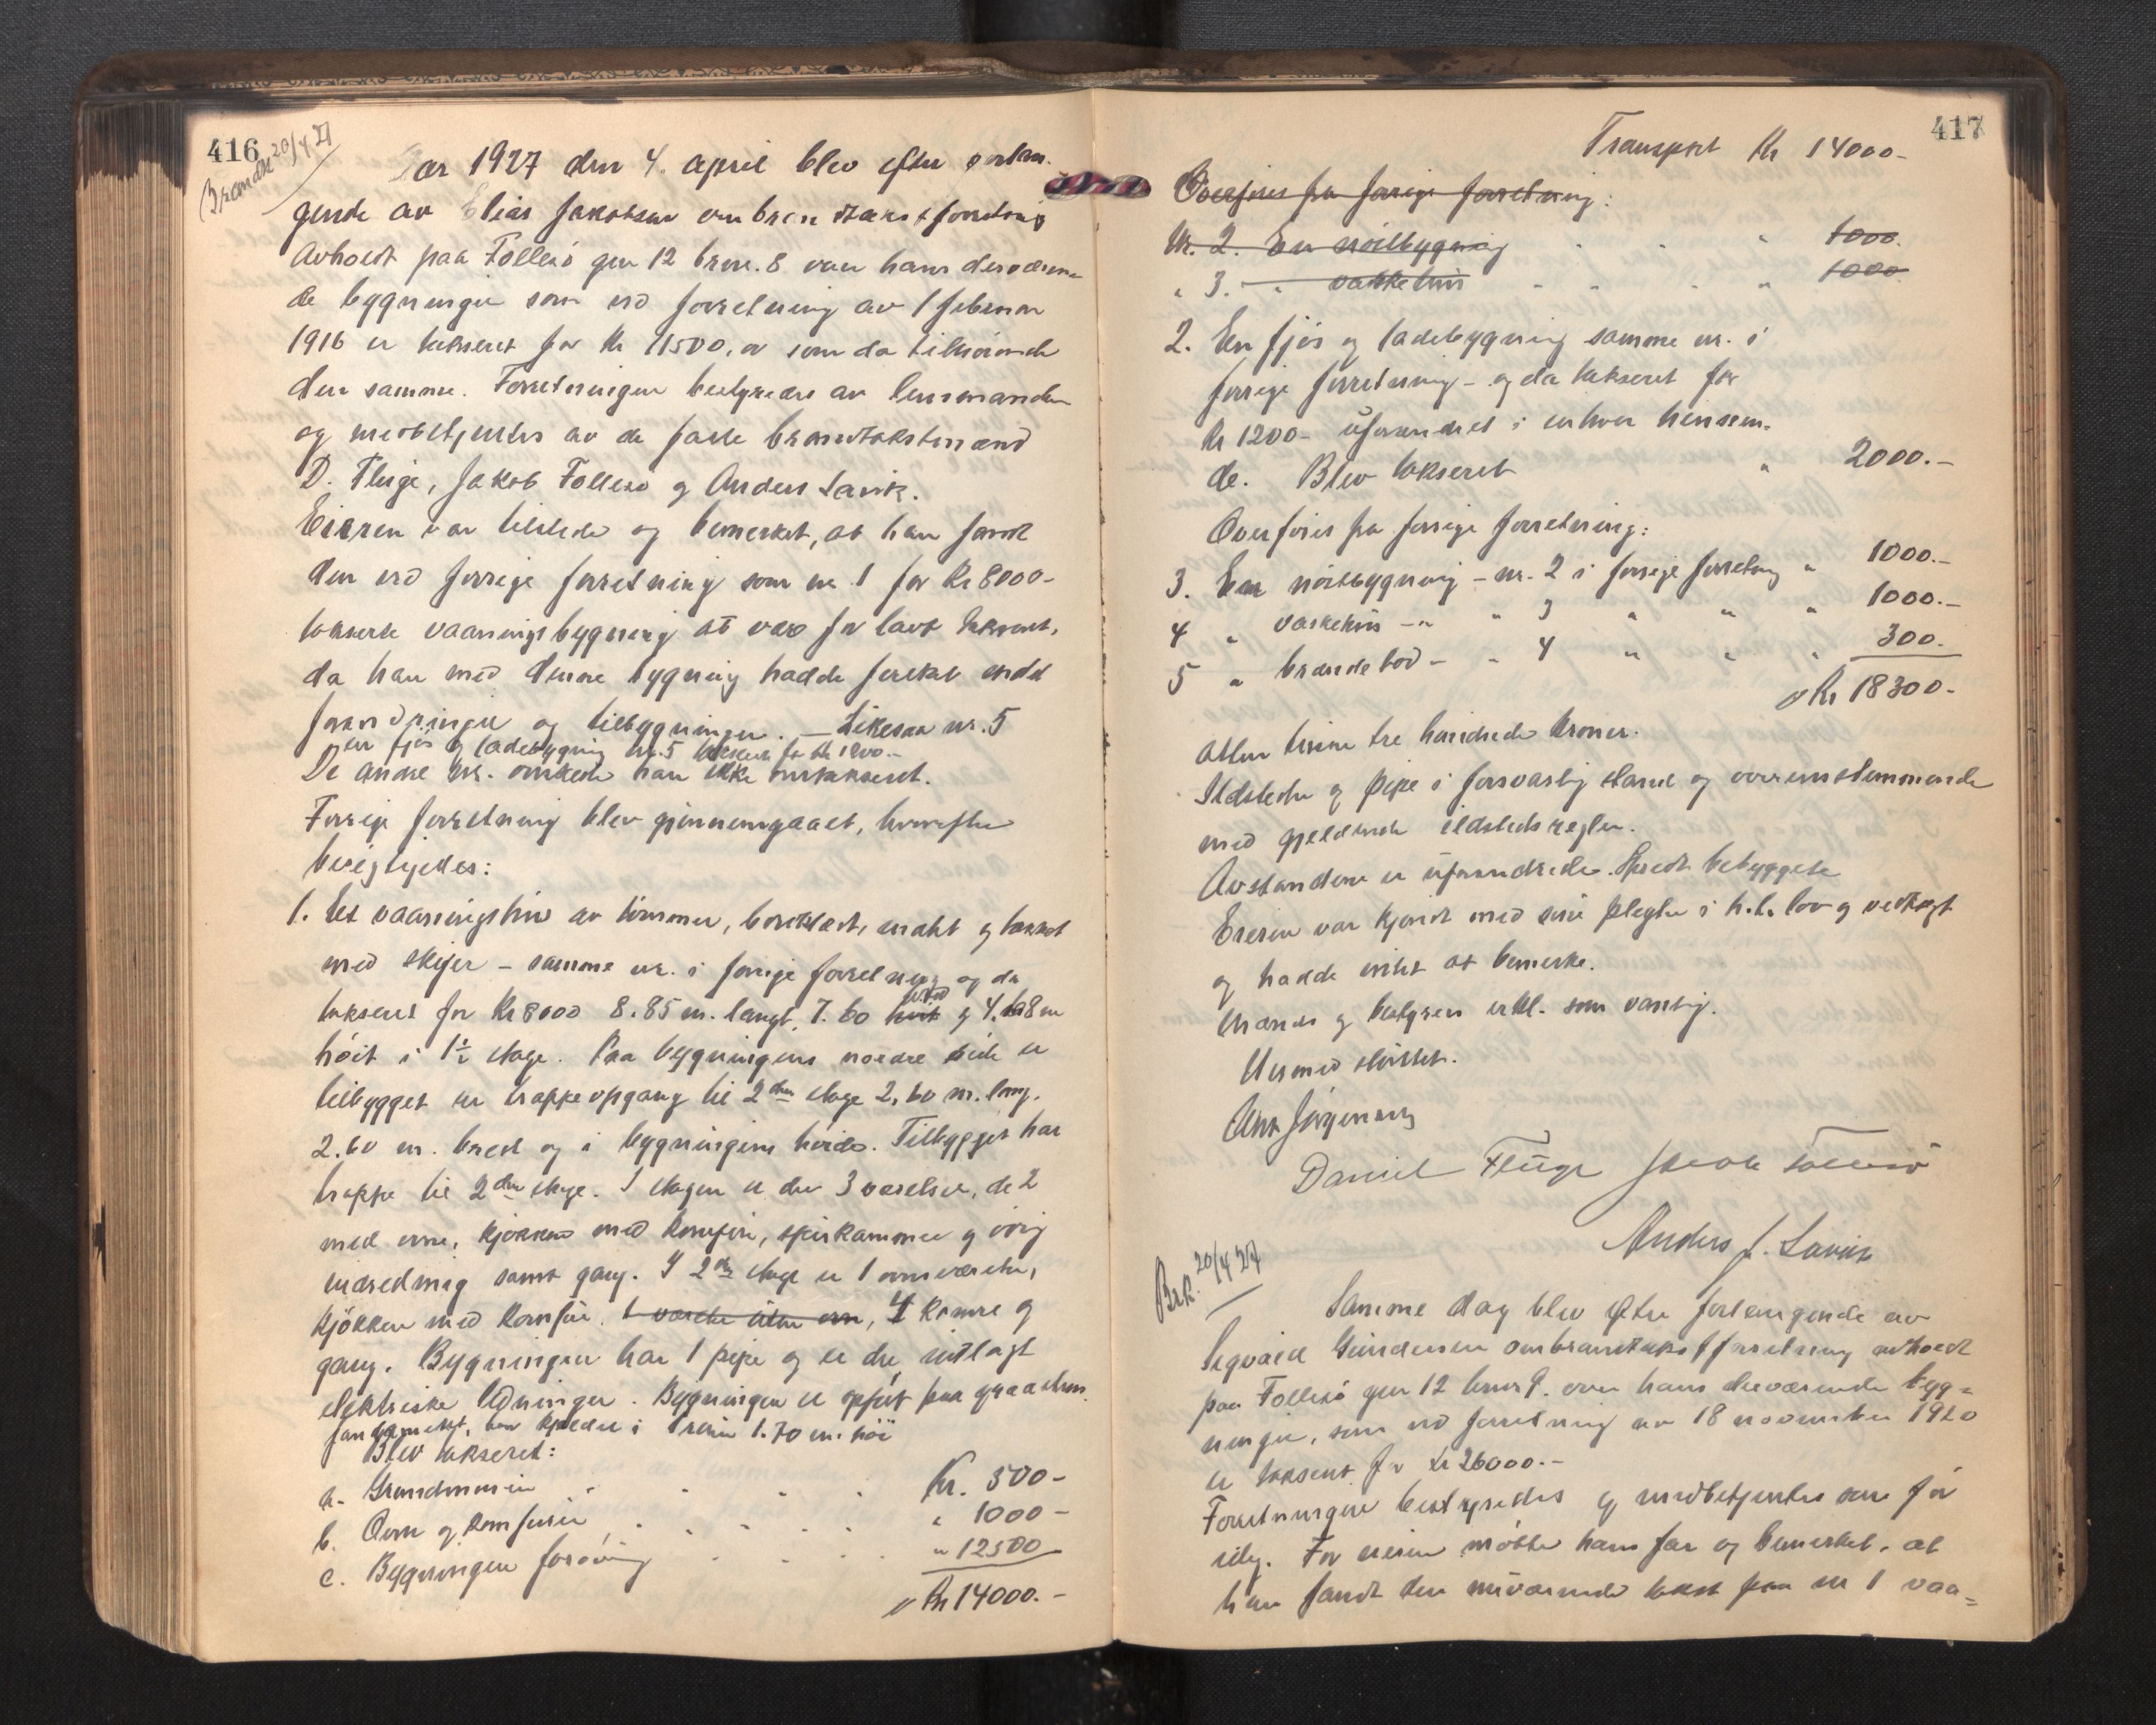 416
Brandk 20/4 27
Aar 1927 den 4. april blev efter forlan-
gende av Elias Jakobsen ombrandtakstforretning
avholdt paa Follesö gnr 12 brnr. 8 over hans derværen-
de bygninger som ved forretning av 1 februar
1916 er takseret for Kr 11500, og som da tilhørende
den samme. Forretningen bestyredes av lensmanden
og medbetjentes av de faste brandtakstmænd
D. Fluge, Jakob Follesö og Anders Lavik.
Eieren var tilstede og bemerket, at han fandt
den ved forrige forretning som nr. 1 for Kr 8000-
takserte vaaningsbygning at være for lavt takseret,
da han med denne bygning hadde foretat endel
forandringer og tilbygninger. — Likesaa nr. 5
en fjös og ladebygning nr. 5 takseret for Kr 1200.-
De andre nr. önskede han ikke omtakseret.
Forrige forretning blev gjennemgaaet, hvorefter
besigtigedes:
1. Et vaaningshus av tömmer, bordklædt, malt og tækket
med skifer - samme nr. i forrige forretning og da
takseret for Kr 8000 8.85 m. langt, 7.60 bred og 4.68 m
höit i 1½ etage. Paa bygningens nordre side er
tilbygget en trappeopgang til 2den etage 2,60 m. lang,
2.60 m. bred og i bygningens höide. Tilbygget har
trappe til 2den etage. I etagen er der 3 værelser, de 2
med ovne, kjökken med komfur, spiskammer og övrig
indredning samt gang. I 2den etage er 1 ovnsværelse,
kjökken med komfur, 1 værelse uten ovn, 4 kamre og
gang. Bygningen har 1 pipe og er der indlagt
elektriske ledninger. Bygningen er opført paa graastens
fundament, har kjelder i 1.70 m. höi
Blev takseret:
a. Grundmuren . . . . Kr. 500-
b. Ovne og komfurer . . . . " 1000-
c. Bygningen forövrig . . . " 12500
Kr 14000.-
417
Transport Kr 14000-
Overföres fra forrige forretning:
Nr. 2. En nöistbygning . . " 1000.
" 3. " vaskehus . . . " 1000
2. En fjös og ladebygning samme nr. i
forrige forretning - og da takseret for
Kr 1200- uforandret i enhver henseen-
de. Blev takseret " 2000.-
Overföres fra forrige forretning:
3. En nöistbygning - nr. 2 i forrige forretning " 1000.-
4 " vaskehus - " " 3 " " " 1000.-
5 " brændebod - " 4 " " " 300.
Kr 18300-
atten tusen tre hundrede kroner.
Ildsteder og pipe i forsvarlig stand og overensstemmende
med gjeldende ildstedsregler.
Avstandene er uforandrede. Spredt bebyggelse
Eieren var kjendt med sine pligter i h.t. lov og vedtægt
og hadde intet at bemerke.
Mænd og bestyrer erkl. som vanlig.
Hermed sluttet.
Jörgensen
Daniel Fluge Jakob Follesö
Anders J. Lavik
Brk. 20/4 27
Samme dag blev efter forlangende av
Sigvald Gundersen ombrandtakstforretning avholdt
paa Follesö gnr 12 brnr 9. over hans derværende byg-
ninger, som ved forretning av 18 november 1920
er takseret for Kr 26000.-
Forretningen bestyredes og medbetjentes som för
idag. For eieren mötte hans far og bemerket, at
han fandt den nuværende takst paa nr 1 vaa-